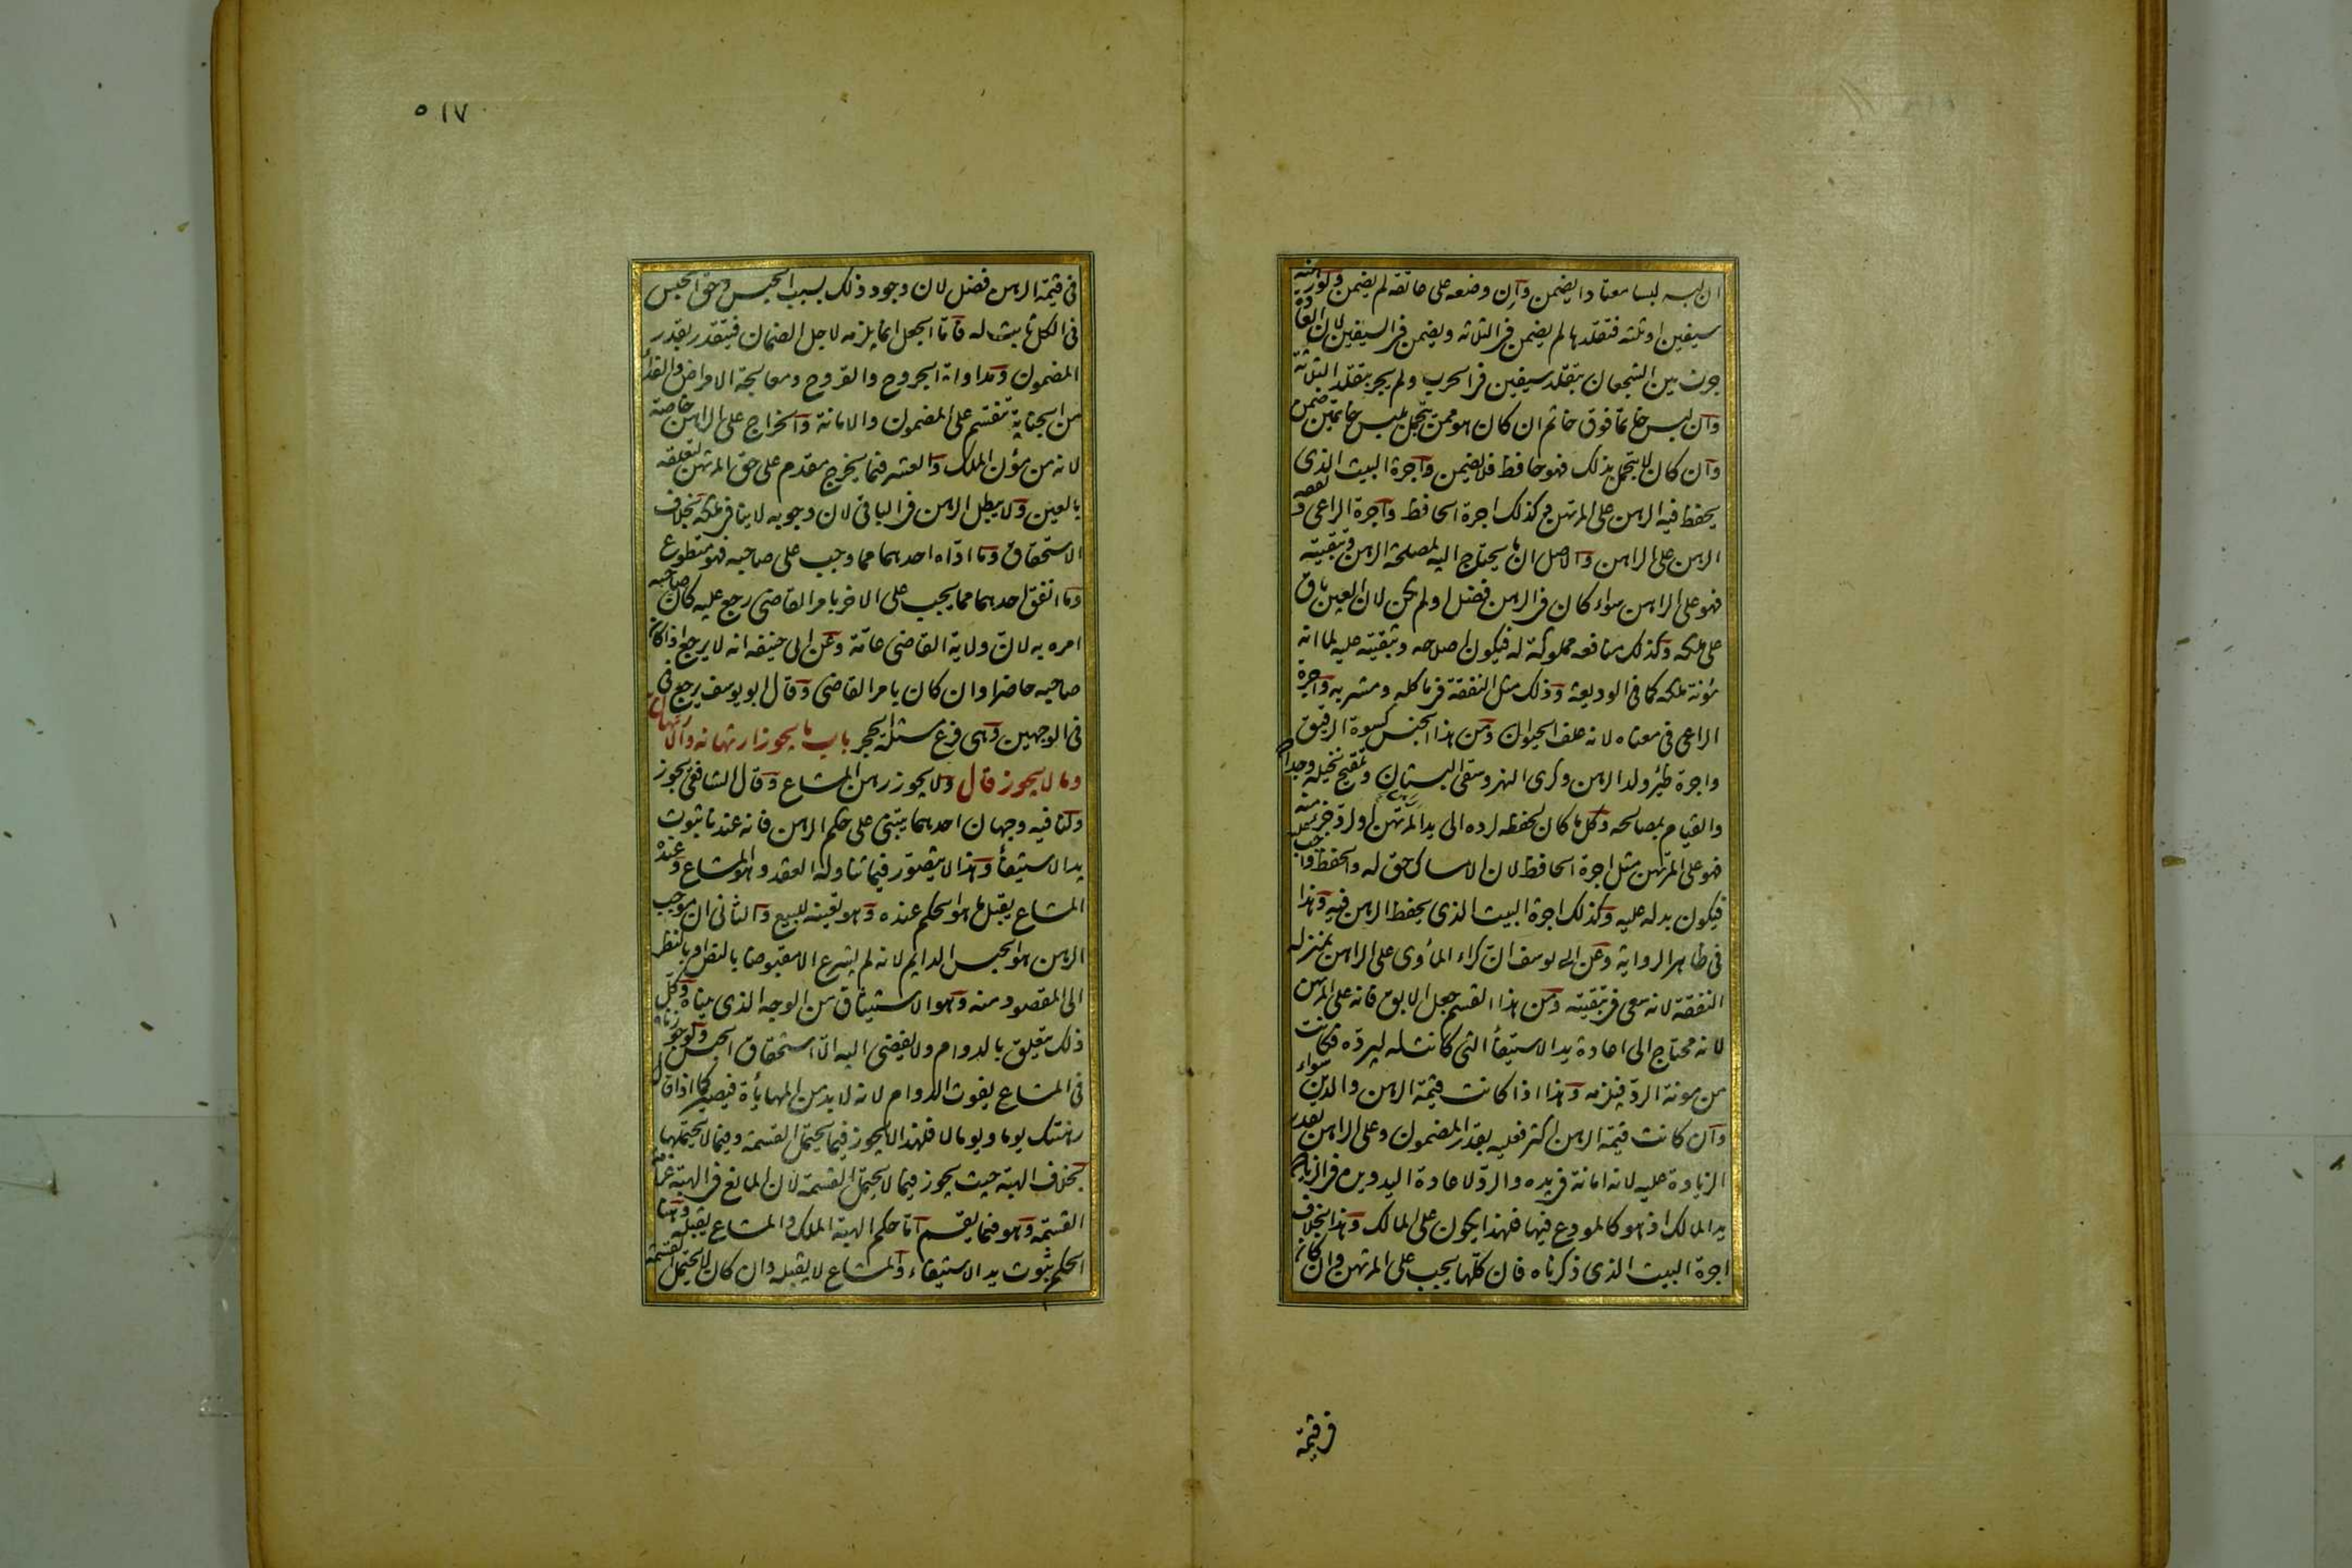 ان لبسه لبسا معتادا يضمن وان وضعه على عاتقه لم يضمن ولو رهنه
سيفين او ثلثه فتقلدها لم يضمن فى الثلاثه ويضمن فى السيفين لان العادة
جرت بين الشجعان بتقلد سيفين فى الحرب ولم يجر بتقلد الثلثة
وان لبس خاتما فوق خاتم ان كان هو ممن يتجمل بلبس خاتمين ضمن
وان كان لا يتجمل بذلك فهو حافظ فلا يضمن واجرة البيت الذى
يحفظ فيه الرهن على المرتهن وكذلك اجرة الحافظ واجرة الراعى ونفقة
الرهن على الراهن والاصل ان ما يحتاج اليه لمصلحة الرهن وتبقيته
فهو على الراهن سواء كان فى الرهن فضل او لم يكن لان العين باق
على ملكه وكذلك منافعه مملوكة له فيكون اصلاحه وتبقيته عليه لما انه
مؤنة ملكه كما فى الوديعة وذلك مثل النفقة فى ماكله ومشربه واجرة
الراعى فى معناه لانه علف الحيوان ومن هذا الجنس كسوة الرقيق
واجرة ظئر ولد الرهن وكرى النهر وسقى البستان وتلقيح نخيله وجداده
والقيام بمصالحه وكل ما كان لحفظه او لرده الى يد المرتهن او لرد جزء منه
فهو على المرتهن مثل اجرة الحافظ لان الامساك حق له والحفظ واجب عليه
فيكون بدله عليه وكذلك اجرة البيت الذى يحفظ الرهن فيه وهذا
فى ظاهر الرواية وعن ابى يوسف ان كراء المأوى على الراهن بمنزلة
النفقة لانه سعى فى تبقيته ومن هذا القسم جعل الابق فانه على المرتهن
لانه محتاج الى اعادة يد الاستيفأ التى كانت له ليرده فكانت
من مونة الرد فيلزمه وهذا اذا كانت قيمة الرهن والدين سواء
وان كانت قيمة الرهن اكثر فعليه بقدر المضمون وعلى الراهن بقدر
الزيادة عليه لانه امانة فى يده والرد لاعادة اليد ويده فى الزيادة
يد المالك اذ هو كالمودع فيها فلهذا يكون على المالك وهذا بخلاف
اجرة البيت الذى ذكرناه فان كلها يجب على المرتهن وان كان
فى قيمة
٥١٧
فى قيمة الرهن فضل لان وجود ذلك بسبب الحبس وحق الحبس
فى الكل ثابت له فاما الجعل انما يلزمه لاجل الضمان فيتقدر بقدر
المضمون ومداواة الجروح والقروح ومعالجة الامراض والفدأ
من الجناية تنقسم على المضمون والامانة والخراج على الراهن خاصة
لانه من مؤن الملك والعشر فيما يخرج مقدم على حق المرتهن لتعلقه
بالعين ولا يبطل الرهن فى الباقى لان وجوبه لا ينافى ملكه بخلاف
الاستحقاق وما اداه احدهما مما وجب على صاحبه فهو متطوع
وما انفق احدهما مما يجب على الاخر بامر القاضى رجع عليه كان صاحبه
امره به لان ولاية القاضى عامة وعن ابى حنيفه انه لا يرجع اذا كان
صاحبه حاضرا وان كان بامر القاضى وقال ابو يوسف يرجع فى
فى الوجهين وهى فرع مسئلة الحجر باب ما يجوز ارتهانه والارتهان به
وما لا يجوز قال ولا يجوز رهن المشاع وقال الشافعى يجوز
ولنا فيه وجهان احدهما يبتنى على حكم الرهن فانه عندنا ثبوت
يد الاستيفأ وهذا لا يتصور فيما تناوله العقد وهو المشاع وعنده
المشاع يقبل ما هو الحكم عنده وهو تعينه للبيع والثانى ان موجب
الرهن هو الحبس الدايم لانه لم يشرع الا مقبوضا بالنص او بالنظر
الى المقصود منه وهو الاستيثاق من الوجه الذى بيناه وكل
ذلك يتعلق بالدوام ولا يفضى اليه الا استحقاق الحبس ولو جوزناه
فى المشاع يفوت الدوام لانه لا بد من المهايأة فيصير كما اذا قال
رهنتك يوما ويوما لا فلهذا لا يجوز فيما يحتمل القسمة وفيما لا يحتملها
بخلاف الهبة حيث يجوز فيما لا يحتمل القسمة لان المانع فى الهبة غرامة
القسمة وهو فيما يقسم اما حكم الهبة الملك والمشاع يقبله وهنا
الحكم ثبوت يد الاستيفاء والمشاع لا يقبله وان كان لا يحتمل القسمة